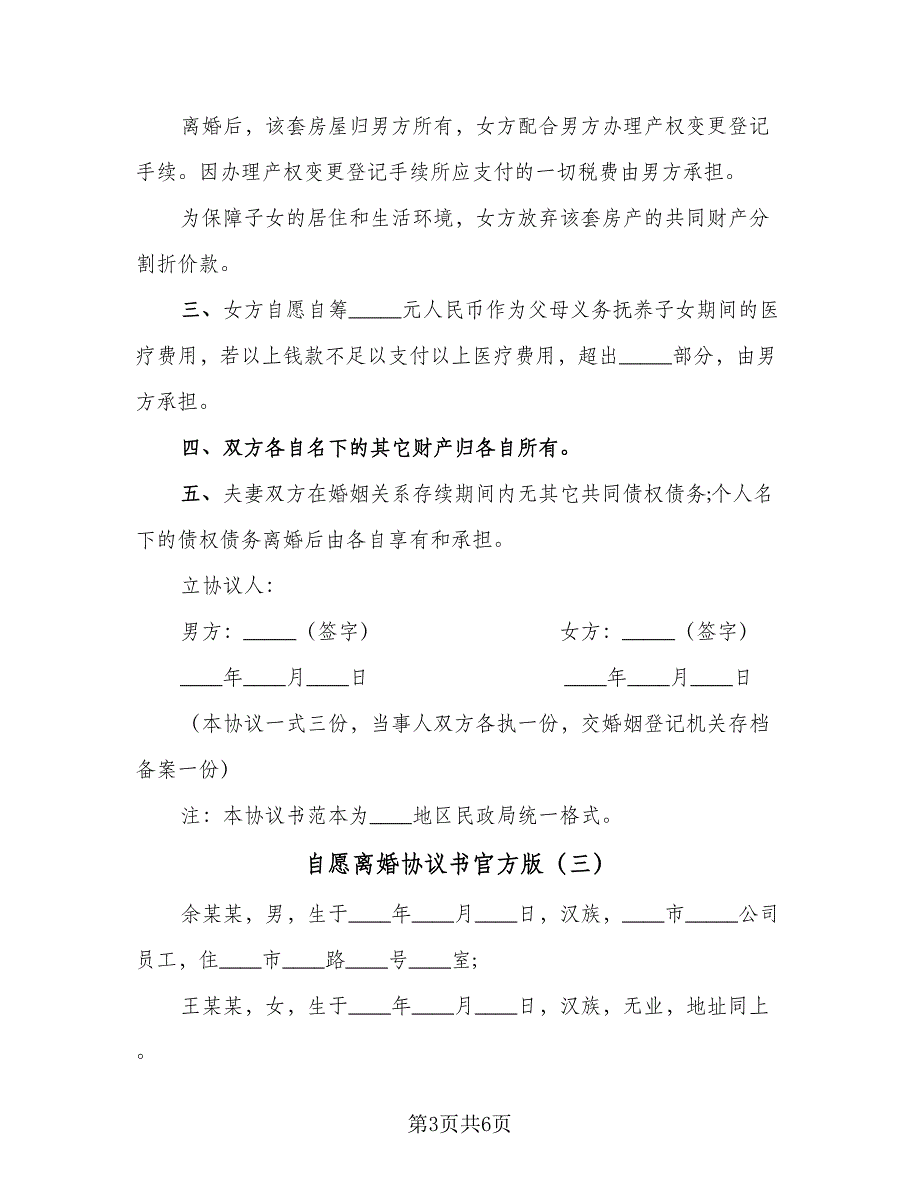 离婚后，该套房屋归男方所有，女方配合男方办理产权变更登记
手续。因办理产权变更登记手续所应支付的一切税费由男方承担。
为保障子女的居住和生活环境，女方放弃该套房产的共同财产分
割折价款。
三、女方自愿自筹_____元人民币作为父母义务抚养子女期间的医
疗费用，若以上钱款不足以支付以上医疗费用，超出_____部分，由男
方承担。
四、双方各自名下的其它财产归各自所有。
五、夫妻双方在婚姻关系存续期间内无其它共同债权债务;个人名
下的债权债务离婚后由各自享有和承担。
立协议人：
男方：_____（签字） 女方：_____（签字）
____年____月____日 ____年____月____日
（本协议一式三份，当事人双方各执一份，交婚姻登记机关存档
备案一份）
注：本协议书范本为____地区民政局统一格式。
自愿离婚协议书官方版（三）
余某某，男，生于____年____月____日，汉族，____市_____公司
员工，住____市____路____号____室;
王某某，女，生于____年____月____日，汉族，无业，地址同上
。
第3页共6页